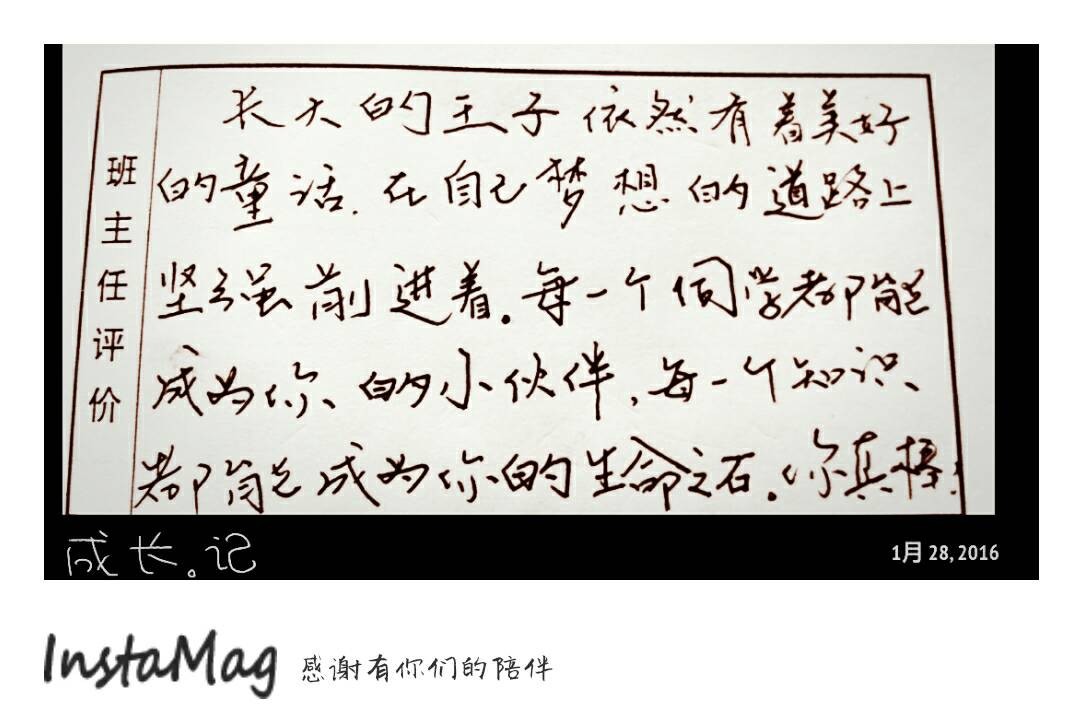 班主任评价
长大的王子依然有着美好
的童话.在自己梦想的道路上
坚强前进着.每一个同学都能
成为你、的小伙伴,每一个知识、
都能成为你的生命之石.你真棒!
成长。记
1月 28, 2016
InstaMag 感谢有你们的陪伴